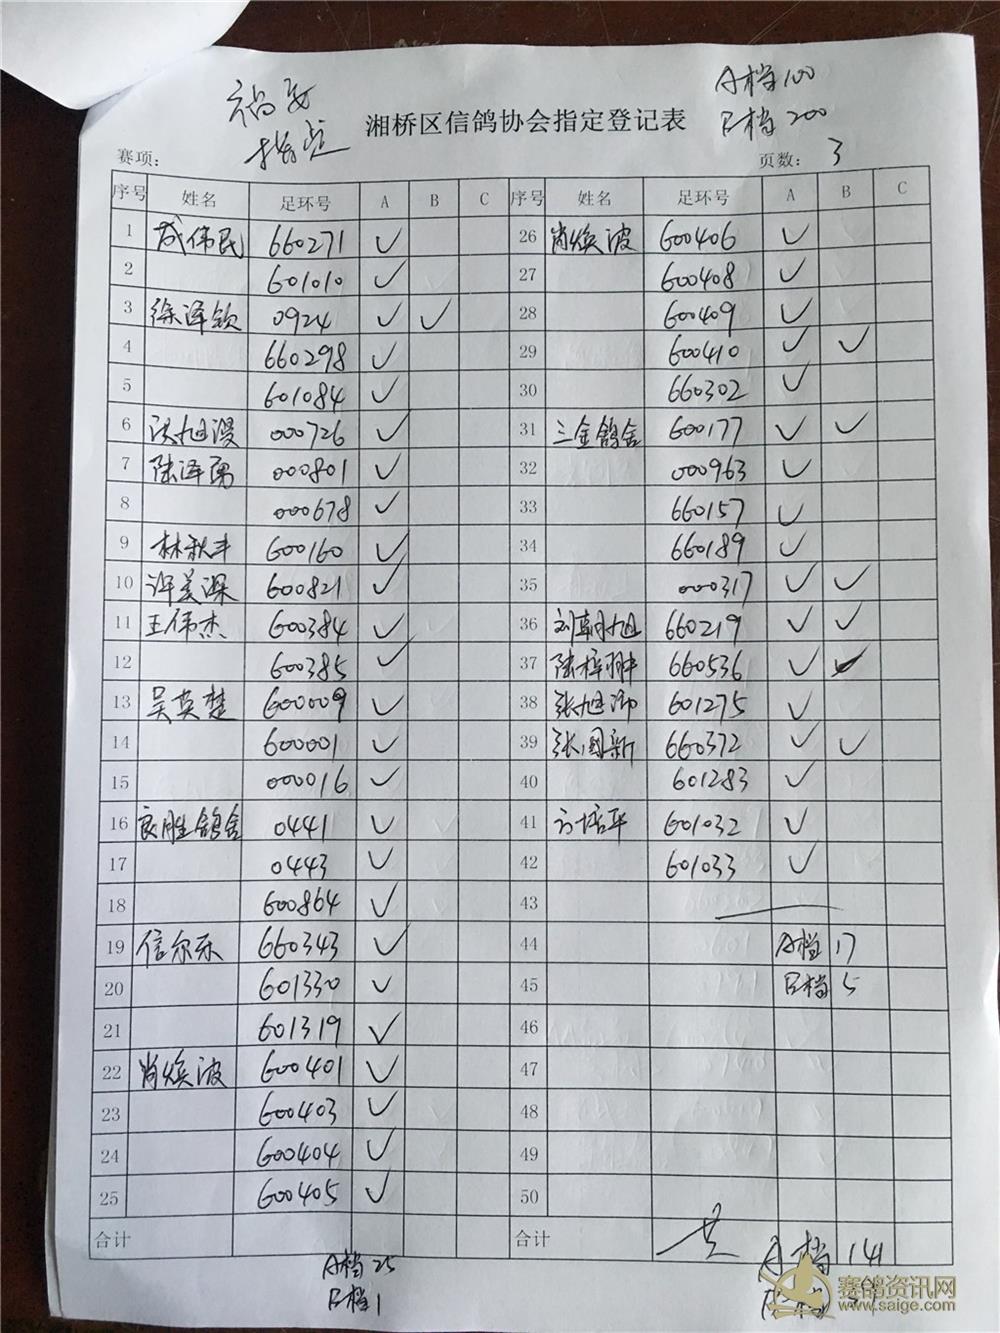 福安
指定
A档100
B档200
湘桥区信鸽协会指定登记表
赛项:
页数: 3
序号 姓名 足环号 A B C 序号 姓名 足环号 A B C
1 成伟民 660271 ✓ 26 肖焕波 600406 ✓
2 601010 ✓ 27 600408 ✓
3 徐泽钦 0924 ✓ ✓ 28 600409 ✓
4 660298 ✓ 29 600410 ✓ ✓
5 601084 ✓ 30 660302 ✓
6 000726 ✓ 31 三金鸽舍 600177 ✓ ✓
7 陆泽勇 000801 ✓ 32 000963 ✓
8 000678 ✓ 33 660157 ✓
9 林秋丰 600160 ✓ 34 660189 ✓
10 许美深 600821 ✓ 35 000317 ✓ ✓
11 王伟杰 600384 ✓ 36 刘朝旭 660219 ✓ ✓
12 600385 ✓ 37 陆梓翀 660536 ✓ ✓
13 吴英楚 600009 ✓ 38 张旭沛 601275 ✓
14 600001 ✓ 39 张国新 660372 ✓ ✓
15 000016 ✓ 40 601283 ✓
16 良胜鸽舍 0441 ✓ 41 601032 ✓
17 0443 ✓ 42 601033 ✓
18 600864 ✓ 43
19 信尔乐 660343 ✓ 44 A档 17
20 601330 ✓ 45 B档 5
21 601319 ✓ 46
22 肖焕波 600401 ✓ 47
23 600403 ✓ 48
24 600404 ✓ 49
25 600405 ✓ 50
合计 合计 共 A档 141
A档 25
B档 1
B档
赛鸽资讯网
www.saige.com